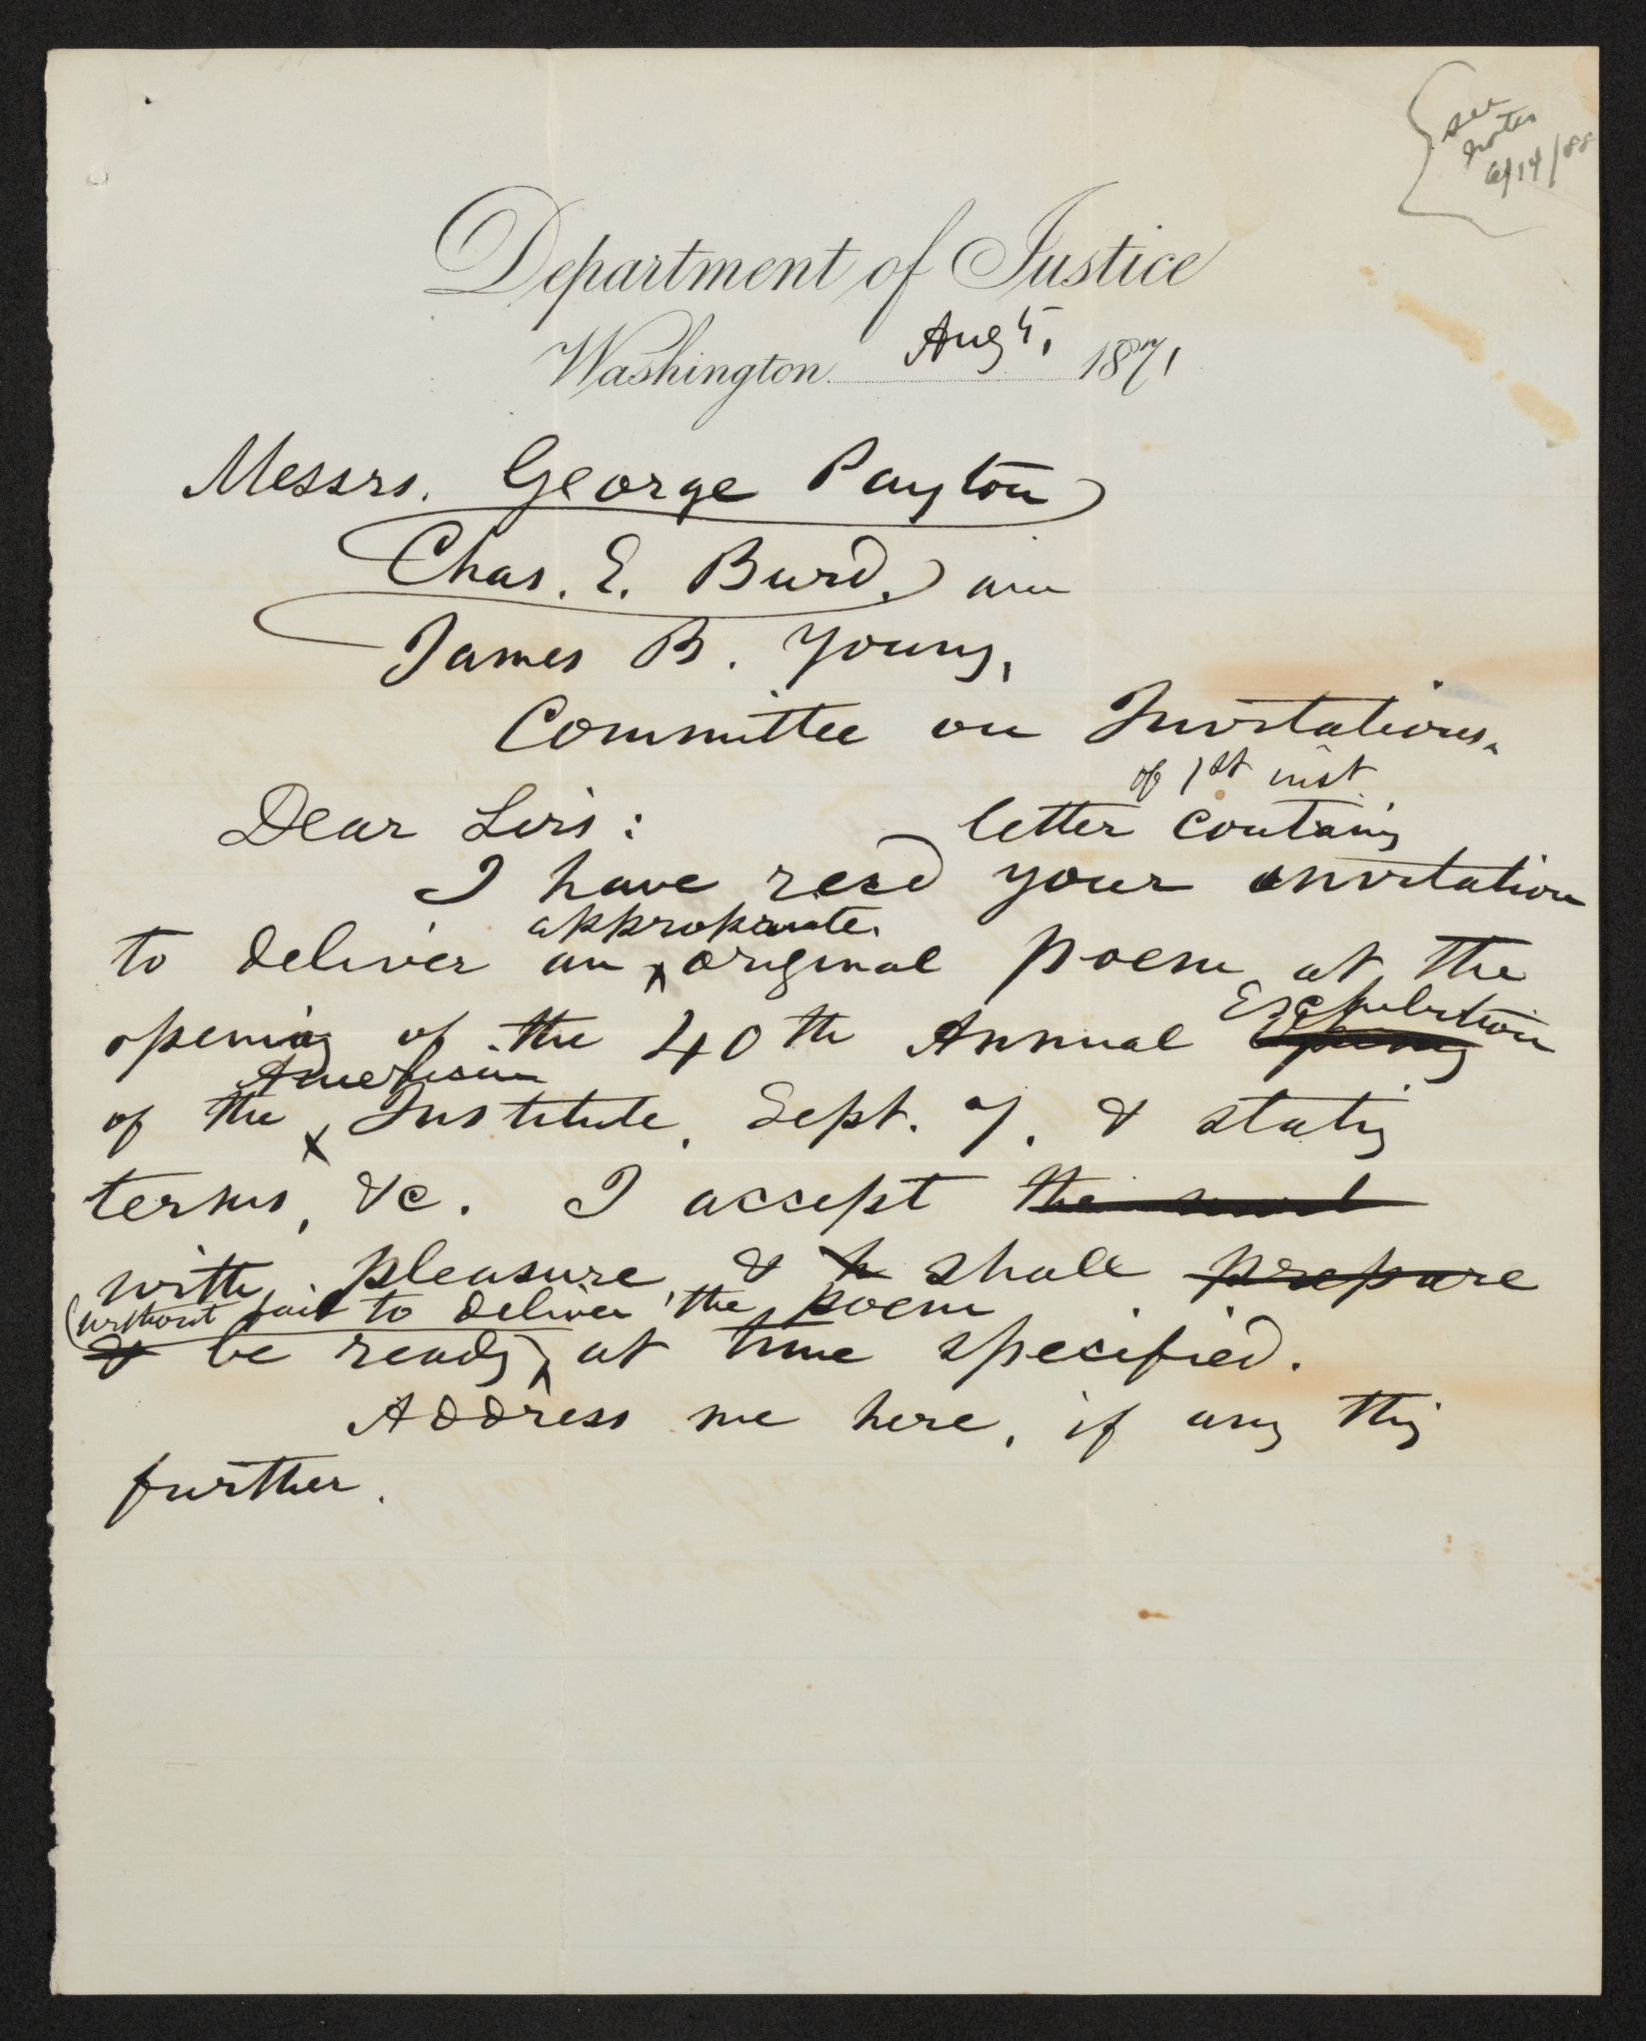 see
notes
6/14/88
Department of Justice
Washington. Aug 5, 1871
Messrs. George Payton
Chas. E. Burd, and
James B. Young,
Committee on Invitations.
Dear Sirs:
of 1st inst.
letter containing
I have rec'd your invitation
appropriate
to deliver an original poem at the
Exhibition
opening of the 40th Annual Opening
American
of the Institute, Sept. 7. & stating
terms, &c. I accept the
with pleasure, & h shall prepare
(without fail to deliver the poem
& be ready at time specified.
Address me here, if any thing
further.